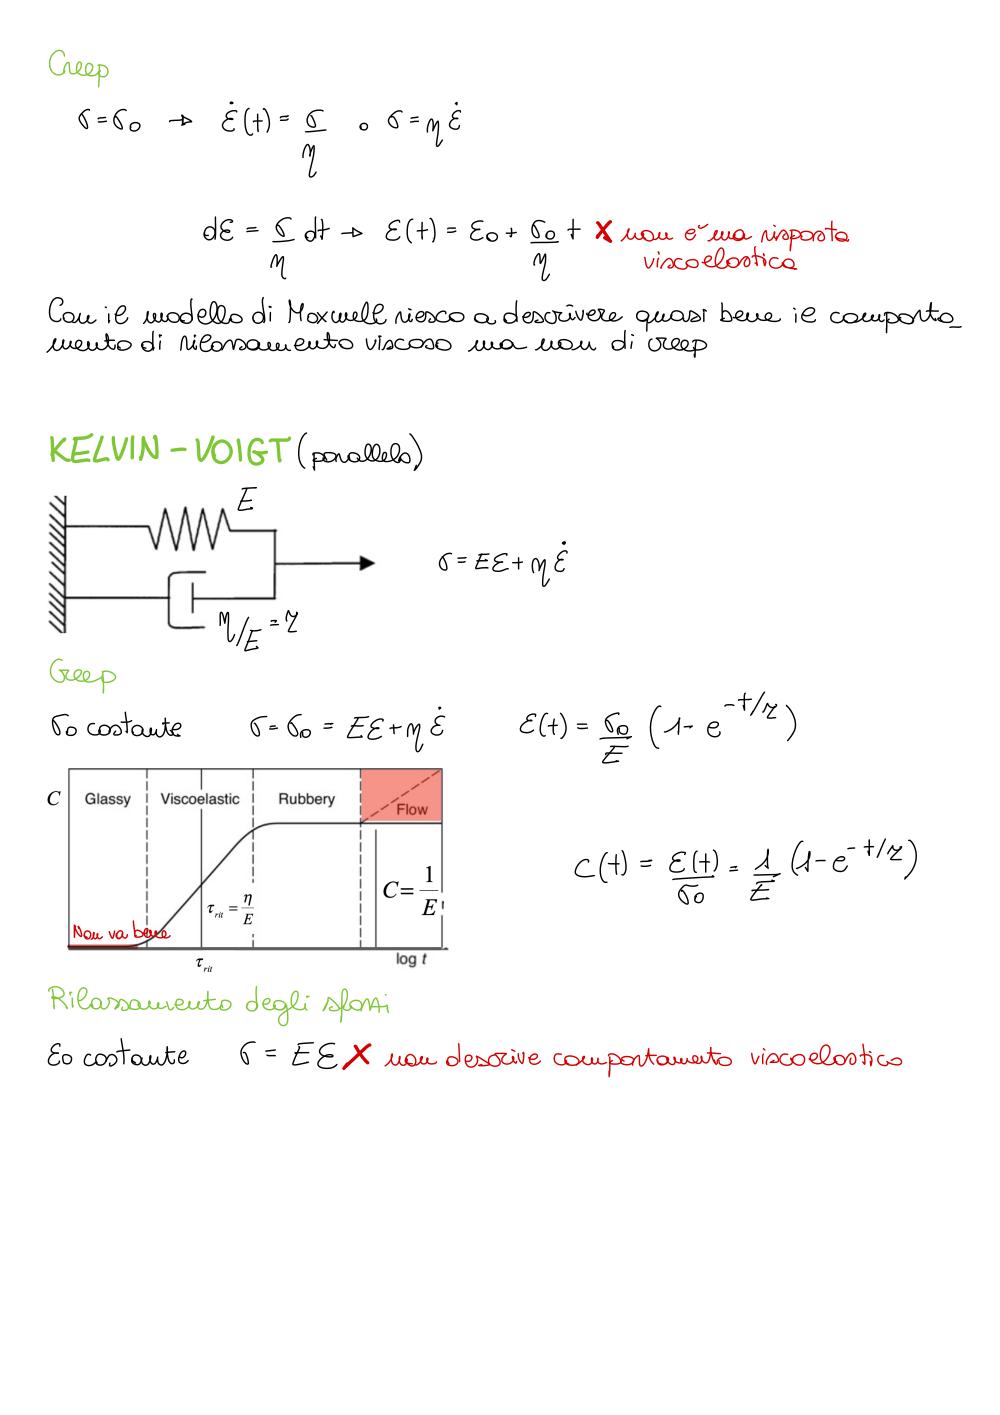 Creep
σ=σ₀ → ε̇(t) = σ/η o σ=η ε̇
dε = σ/η dt → ε(t) = ε₀ + σ₀/η t X non è una risposta
viscoelastica
Con il modello di Maxwell riesco a descrivere quasi bene il comporta_
mento di rilassamento viscoso ma non di creep
KELVIN - VOIGT (parallelo)
E
σ = Eε + η ε̇
η/E = τ
Creep
σ₀ costante σ = σ₀ = Eε + η ε̇ ε(t) = σ₀/E (1 - e^(-t/τ))
C Glassy Viscoelastic Rubbery Flow
C(t) = ε(t)/σ₀ = 1/E (1 - e^(-t/τ))
τrit = η/E C = 1/E
Non va bene
τrit log t
Rilassamento degli sforzi
ε₀ costante σ = Eε X non descrive comportamento viscoelastico